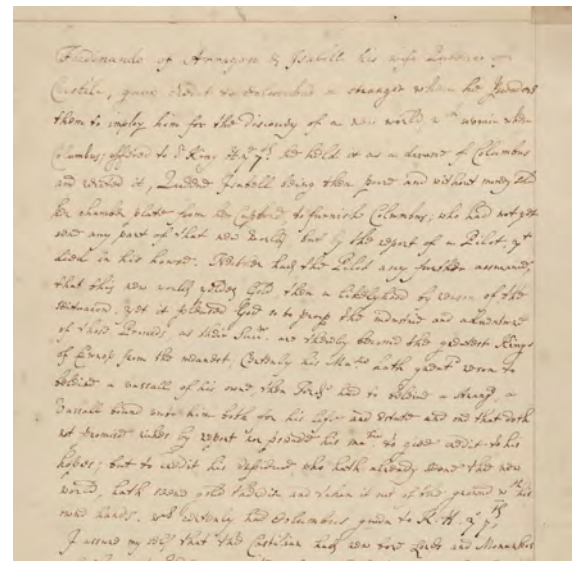 Ferdinando of Arragon & Isabell his wife Queene of
Castile, gave credit to Columbus a stranger when he
them to imploy him for the discovery of a new world, wch when
Columbus, offered to ye King Hen: 7th he held it as a dreame of Columbus
and it, Queene Isabell being then poore and without money sold
her chamber plate from her Cupbord, to furnish Columbus; who had not yet
seene any part of that new world, but by the report of a Pilot, yt
died in his howse. Neither had the Pilot any further assurance,
that this new world, yelded Gold, then a likelyhood by reason of the
situation. yet it pleased God so to prosp the industrie and adventure
of those Princes, as their Succ: are thereby become the greatest Kings
of Europ from the meanest, Certenly his Matie hath great reson to
beleive a vassall of his owne, then had to beleive a Strang, a
Vassall bound unto him both for his life and estate and one that doth
not promise riches by report nor his Matie to give credit to his
hopes; but to credit his who hath already seene the new
world, hath seene gold and taken it out of the ground wth his
owne hands. certenly had Columbus, to K. H. ye 7th
I assure my self that the Castilian had now bore Lords and Monarkes